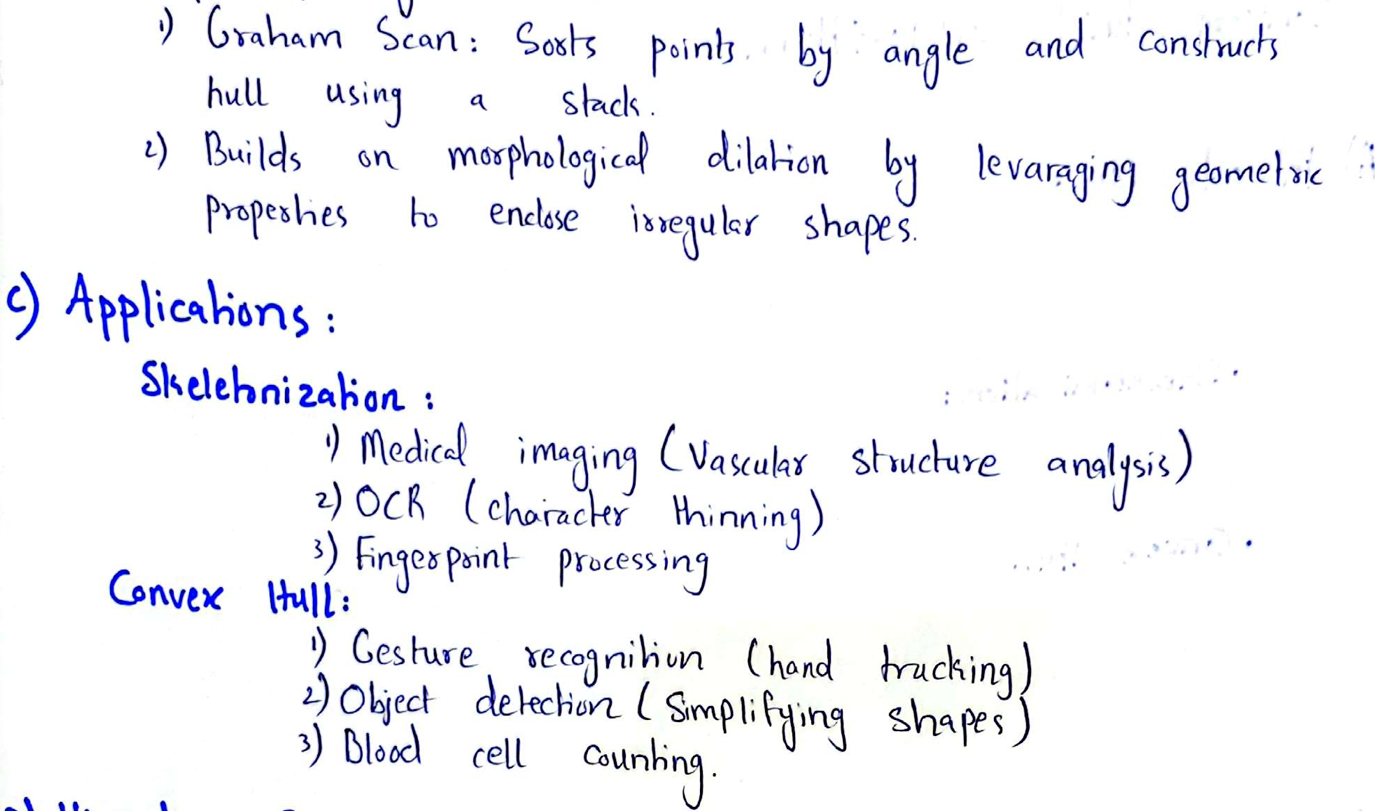 1) Graham Scan: Sorts points by angle and constructs
hull using a stack.
2) Builds on morphological dilation by levaraging geometric
properties to enclose irregular shapes.
c) Applications:
Skeletonization:
1) Medical imaging (Vascular structure analysis)
2) OCR (character thinning)
3) Fingerprint processing
Convex Hull:
1) Gesture recognition (hand tracking)
2) Object detection (Simplifying shapes)
3) Blood cell counting.